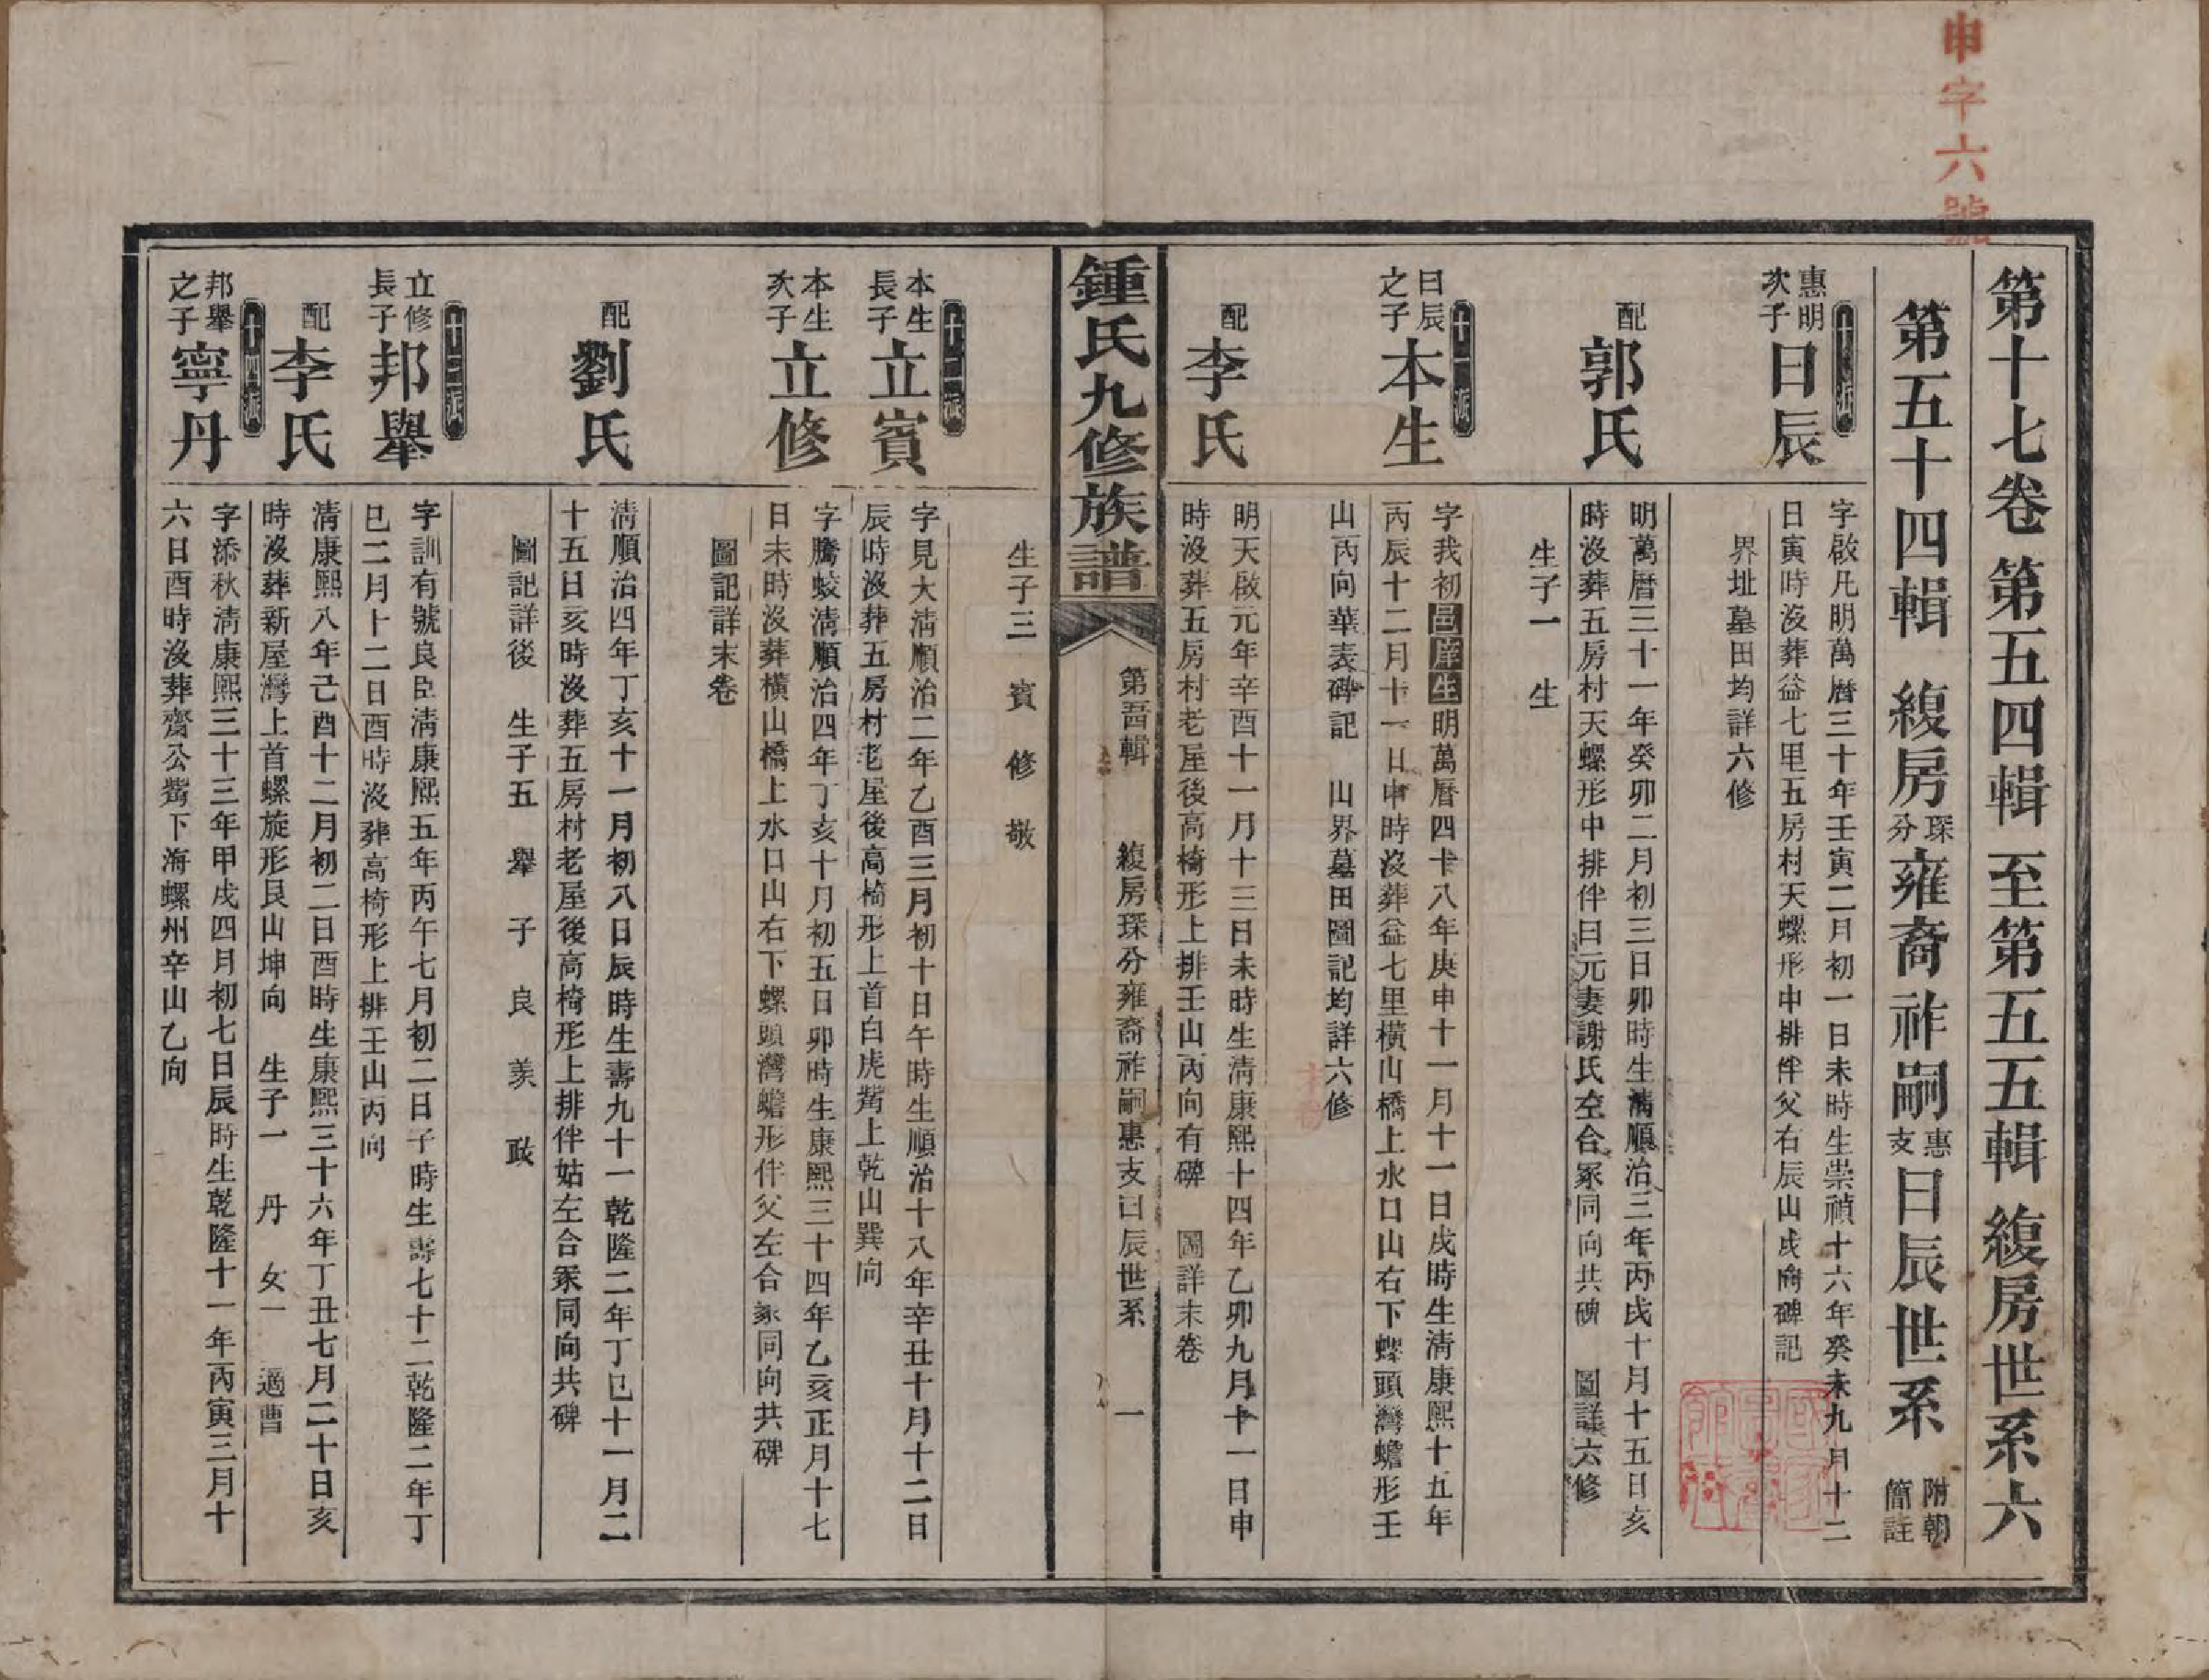 申字六號
第十七卷 第五四輯 至第五五輯 緮房世系六
第五十四輯 緮房琛分雍裔祚嗣惠支日辰世系 附朝簡註
十派
惠明次子日辰
字啟凡明萬曆三十年壬寅二月初一日未時生崇禎十六年癸未九月十二
日寅時沒葬益七里五房村天螺形中排伴父右辰山戌向碑記
界址墓田均詳六修
配郭氏
明萬曆三十一年癸卯二月初三日卯時生清順治三年丙戌十月十五日亥
時沒葬五房村天螺形中排伴日元妻謝氏左合冢同向共碑 圖詳六修
生子一 生
十一派
日辰之子本生
字我初邑庠生明萬曆四十八年庚申十一月十一日戌時生清康熙十五年
丙辰十二月十一日申時沒葬益七里橫山橋上水口山右下螺頭灣蟾形壬
山丙向華表碑記 山界墓田圖記均詳六修
配李氏
明天啟元年辛酉十一月十三日未時生清康熙十四年乙卯九月十一日申
時沒葬五房村老屋後高椅形上排壬山丙向有碑 圖詳末卷
鍾氏九修族譜
第吾輯 緮房琛分雍裔祚嗣惠支日辰世系 一
生子三 賓 修 敬
十二派
本生長子立賓
字見大清順治二年乙酉三月初十日午時生順治十八年辛丑十月十二日
辰時沒葬五房村老屋後高椅形上首白虎觜上乾山巽向
本生次子立修
字騰蛟清順治四年丁亥十月初五日卯時生康熙三十四年乙亥正月十七
日未時沒葬橫山橋上水口山右下螺頭灣蟾形伴父左合冢同向共碑
圖記詳末卷
配劉氏
清順治四年丁亥十一月初八日辰時生壽九十一乾隆二年丁巳十一月二
十五日亥時沒葬五房村老屋後高椅形上排伴姑左合冢同向共碑
圖記詳後 生子五 舉 子 良 羨 政
十三派
立修長子邦舉
字訓有號良臣清康熙五年丙午七月初二日子時生壽七十二乾隆二年丁
巳二月十二日酉時沒葬高椅形上排壬山丙向
配李氏
清康熙八年己酉十二月初二日酉時生康熙三十六年丁丑七月二十日亥
時沒葬新屋灣上首螺旋形艮山坤向 生子一 丹 女一 適曹
十四派
邦舉之子寧丹
字添秋清康熙三十三年甲戌四月初七日辰時生乾隆十一年丙寅三月十
六日酉時沒葬齊公觜下海螺州辛山乙向